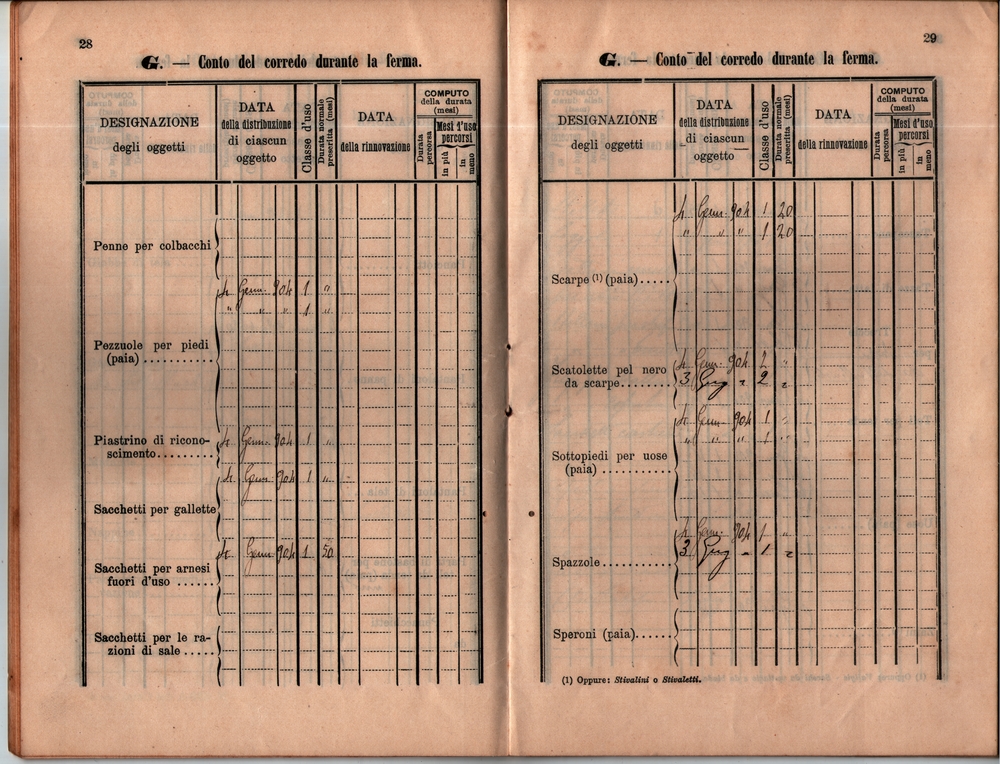 28
G. — Conto del corredo durante la ferma.
DESIGNAZIONE
degli oggetti
DATA
della distribuzione
di ciascun
oggetto
Classe d'uso
Durata normale
prescritta (mesi)
DATA
della rinnovazione
COMPUTO
della durata
(mesi)
Durata
percorsa
Mesi d'uso
percorsi
in più
in
meno
Penne per colbacchi
4 Genn. 904 1 "
" " " 1 "
Pezzuole per piedi
(paia) ..........
Piastrino di ricono-
scimento......... 4 Genn. 904 1 "
4 Genn. 904 1 "
Sacchetti per gallette
4 Genn. 904 1 50
Sacchetti per arnesi
fuori d'uso ......
Sacchetti per le ra-
zioni di sale .....
29
G. — Conto del corredo durante la ferma.
DESIGNAZIONE
degli oggetti
DATA
della distribuzione
di ciascun
oggetto
Classe d'uso
Durata normale
prescritta (mesi)
DATA
della rinnovazione
COMPUTO
della durata
(mesi)
Durata
percorsa
Mesi d'uso
percorsi
in più
in
meno
4 Genn. 904 1 20
" " " 1 20
Scarpe (1) (paia).....
4 Genn. 904 2 "
Scatolette pel nero
da scarpe........ 3 " 2 "
4 Genn. 904 1 "
" " " 1 "
Sottopiedi per uose
(paia) ...........
4 Genn. 904 1 "
3 " 1 "
Spazzole............
Speroni (paia)......
(1) Oppure: Stivalini o Stivaletti.